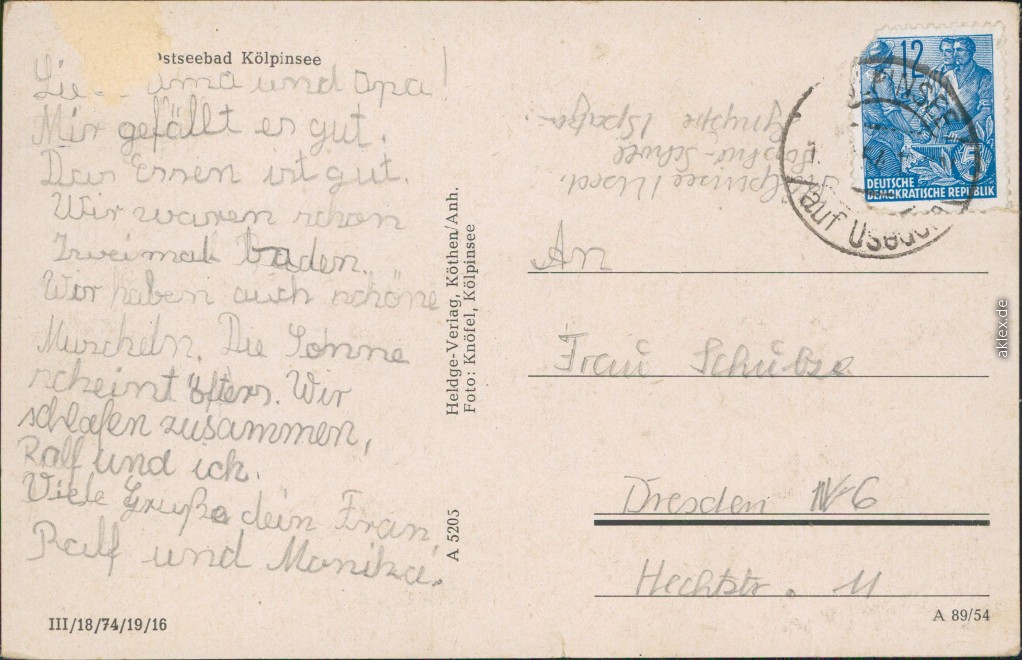 Ostseebad Kölpinsee
Oma und Opa!
Mir gefällt es gut.
Das Essen ist gut.
Wir waren schon
Zweimal baden.
Wir haben auch schöne
Muscheln. Die Sonne
scheint öfters. Wir
schlafen zusammen,
Ralf und ich.
Viele Gruße dein Fran,
Ralf und Monika.
III/18/74/19/16
A 5205
Heldge-Verlag, Köthen/Anh.
Foto: Knöfel, Kölpinsee
Gruppe
12
DEUTSCHE
DEMOKRATISCHE REPUBLIK
auf Usedom
An
Frau Schulze
Dresden N 6
Hechtstr. 11
A 89/54
aklex.de